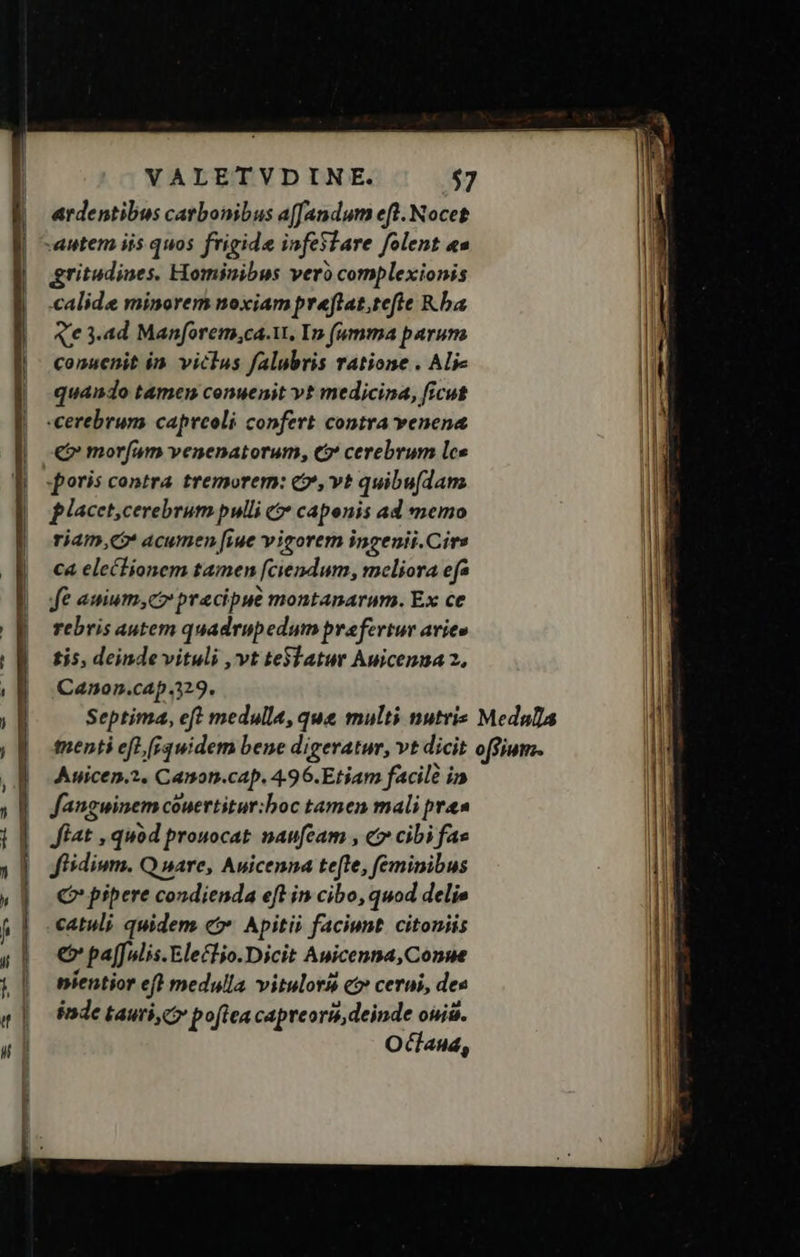 VALETVDINE. 57
ardentibus carbonibus aſſandum eſt. Nocet
autem iis quos frigidæ infeſtare ſolent æ-
gritudines. Hominibus verò complexionis
calidæ minorem noxiam præſtat, teſte Rha
Ze 3. ad Manſorem, ca. 11. In ſumma parum
conuenit in victus ſalubris ratione. Ali-
quando tamen conuenit vt medicina, ſicut
cerebrum capreoli confert contra venena
& morſum venenatorum, & cerebrum le-
poris contra tremorem: &, vt quibuſdam
placet, cerebrum pulli & caponis ad memo
riam, & acumen ſiue vigorem ingenii. Cir-
ca electionem tamen ſciendum, meliora eſ-
ſe auium, & præcipuè montanarum. Ex ce
rebris autem quadrupedum præfertur arie-
tis, deinde vituli, vt teſtatur Auicenna 2.
Canon. cap. 329.
Septima, eſt medulla, quæ multi nutri- Medulla
menti eſt, ſiquidem bene digeratur, vt dicit oſsium.
Auicen. 2. Canon. cap. 496. Etiam facilè in
ſanguinem cōuertitur: hoc tamen mali præ-
ſtat, quòd prouocat nauſeam, & cibi fa-
ſtidium. Quare, Auicenna teſte, ſeminibus
& pipere condienda eſt in cibo, quod delie
catuli quidem & Apitii faciunt citoniis
& paſſulis. Electio. Dicit Auicenna, Conue
nientior eſt medulla vitulorū & cerui, de-
inde tauri, & poſtea capreorū, deinde ouiū.
Octaua,